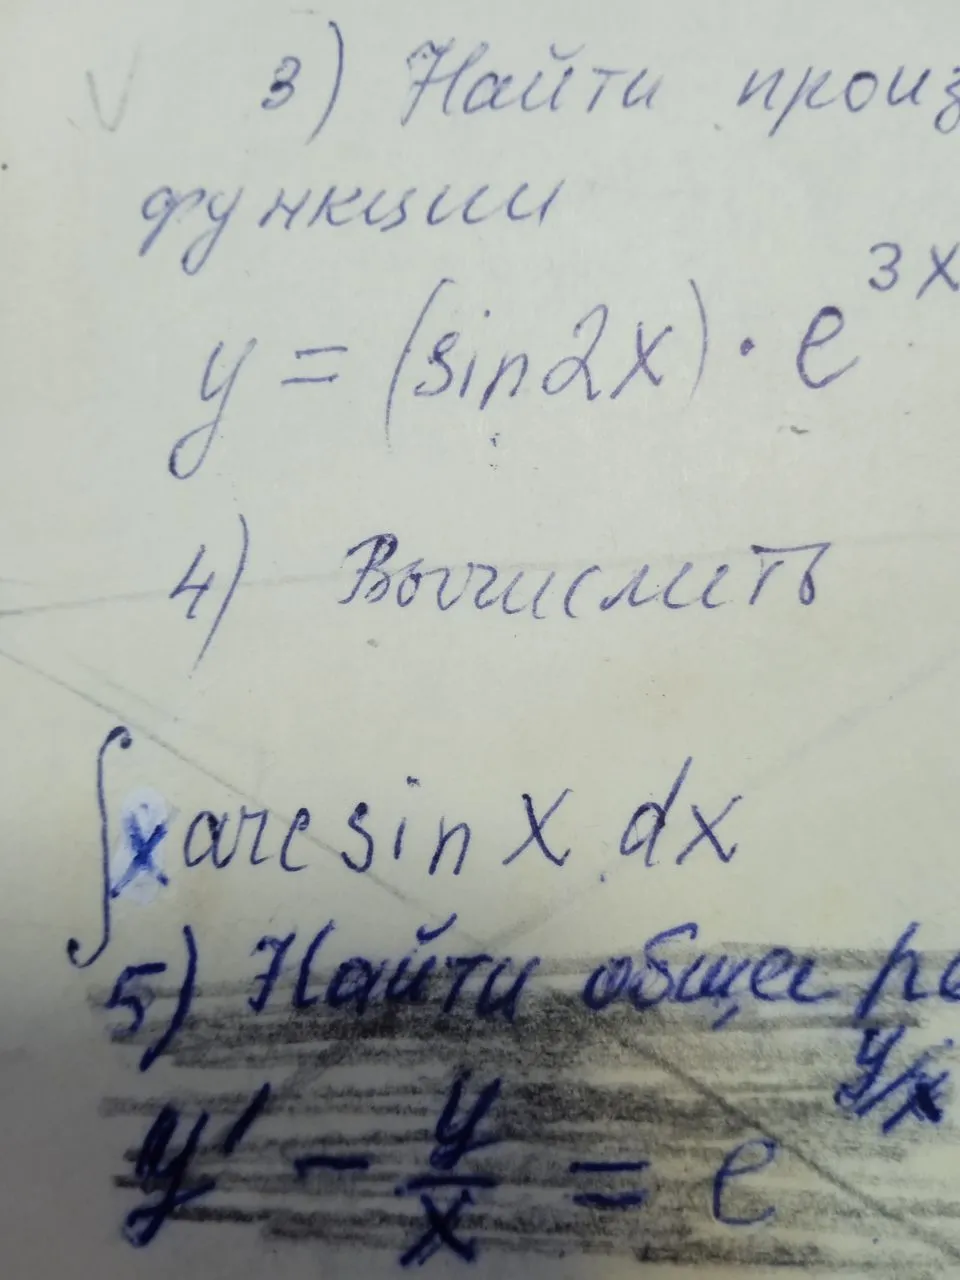 3) Найти произ
функции
y = (sin2x) · e^{3x}
4) Вычислить
∫ x arcsin x dx
5) Найти общее ре
y' - y/x = e^{y/x}